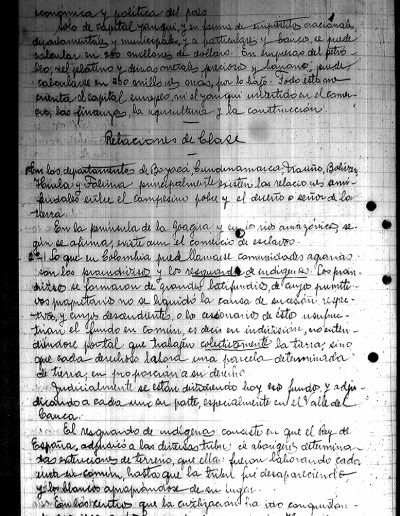 económica y política del País
Solo de capital yanqui, y en forma de empréstitos nacionales
departamentales y municipales, y a particulares y bancos, se puede
calcular en 280 millones de dollars. En empresas del petró-
leo, del platino y demás metales preciosos y banano, puede
calcularse en 260 millones más, por lo bajo. Todo esto no
cuenta el capital europeo, ni el yanqui invertido en el comer-
cio, las finanzas, la agricultura y la construcción.
Relaciones de Clase
En los departamentos de Boyacá, Cundinamarca, Nariño, Bolívar,
Huila y Tolima principalmente existen las relaciones semi-
feudales entre el campesino pobre y el dueño o señor de la
tierra.
En la península de la Goagira y en los ríos amazónicos, se-
gún se afirma, existe aun el comercio de esclavos.
Lo que en Colombia puede llamarse comunidades agrarias
son los proindivisos y los resguardos de indígenas. Los proin-
divisos se formaron de grandes latifundios, de cuyo primiti-
vos propietario no se liquidó la causa de sucesión respec-
tiva, y cuyos descendientes, o los cesionarios de estos usufruc-
tuan el fundo en común, es decir en indivisión, no enten-
diéndose por tal que trabajen colectivamente la tierra, sino
que cada derechoso labora una parcela determinada
de tierra, en proporción a su derecho.
Judicialmente se están dividiendo hoy esos fundos, y adju-
dicando a cada uno su parte, especialmente en el Valle del
Cauca.
El resguardo de indígenas consiste en que el Rey de
España, adjudicó a las diversas tribus de aborígenes determina-
das extensiones de terreno, que ellas fueron laborando cada
una en común, hasta que la tribu fué desapareciendo
y los blancos apropiándose de su lugar.
En los centros que la civilización ha ido conquistan-